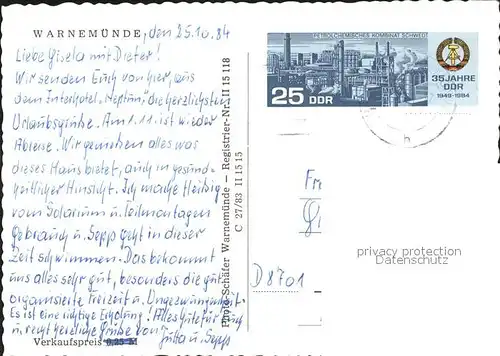 WARNEMÜNDE, den 25.10.84
Liebe Gisela mit Dieter!
Wir senden Euch von hier, aus
dem Interhotel „Neptun“ die herzlichsten
Urlaubsgrüße. Am 1.11. ist wieder
Abreise. Wir genießen alles was
dieses Haus bietet, auch in gesund-
heitlicher Hinsicht. Ich mache fleißig
vom Solarium u. Teilmassagen
Gebrauch u. Sepp geht in dieser
Zeit schwimmen. Das bekommt
uns alles sehr gut, besonders die gut
organisierte Freizeit u. Ungezwungenheit.
Es ist eine richtige Erholung! Alles Gute für Euch
u. recht herzliche Grüße von
Verkaufspreis 0,25 M Jutta u. Sepp
Photo-Schäfer Warnemünde — Registrier-Nr. III 15 118
C 27/83 II 15 15
PETROLCHEMISCHES KOMBINAT SCHWEDT
25 DDR
35 JAHRE
DDR
1949-1984
h
Fr
D8701
privacy protection
Datenschutz